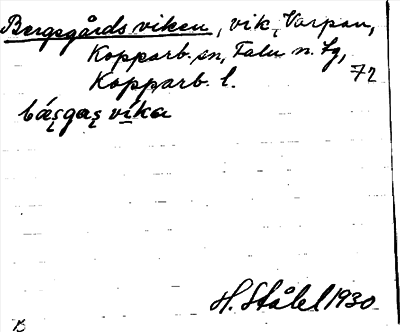 Bergsgårdsviken, vik, Varpan,
Kopparb. sn, Falu n. tg,
Kopparb. l.
72
básgas víka
H. Ståhl 1930
B